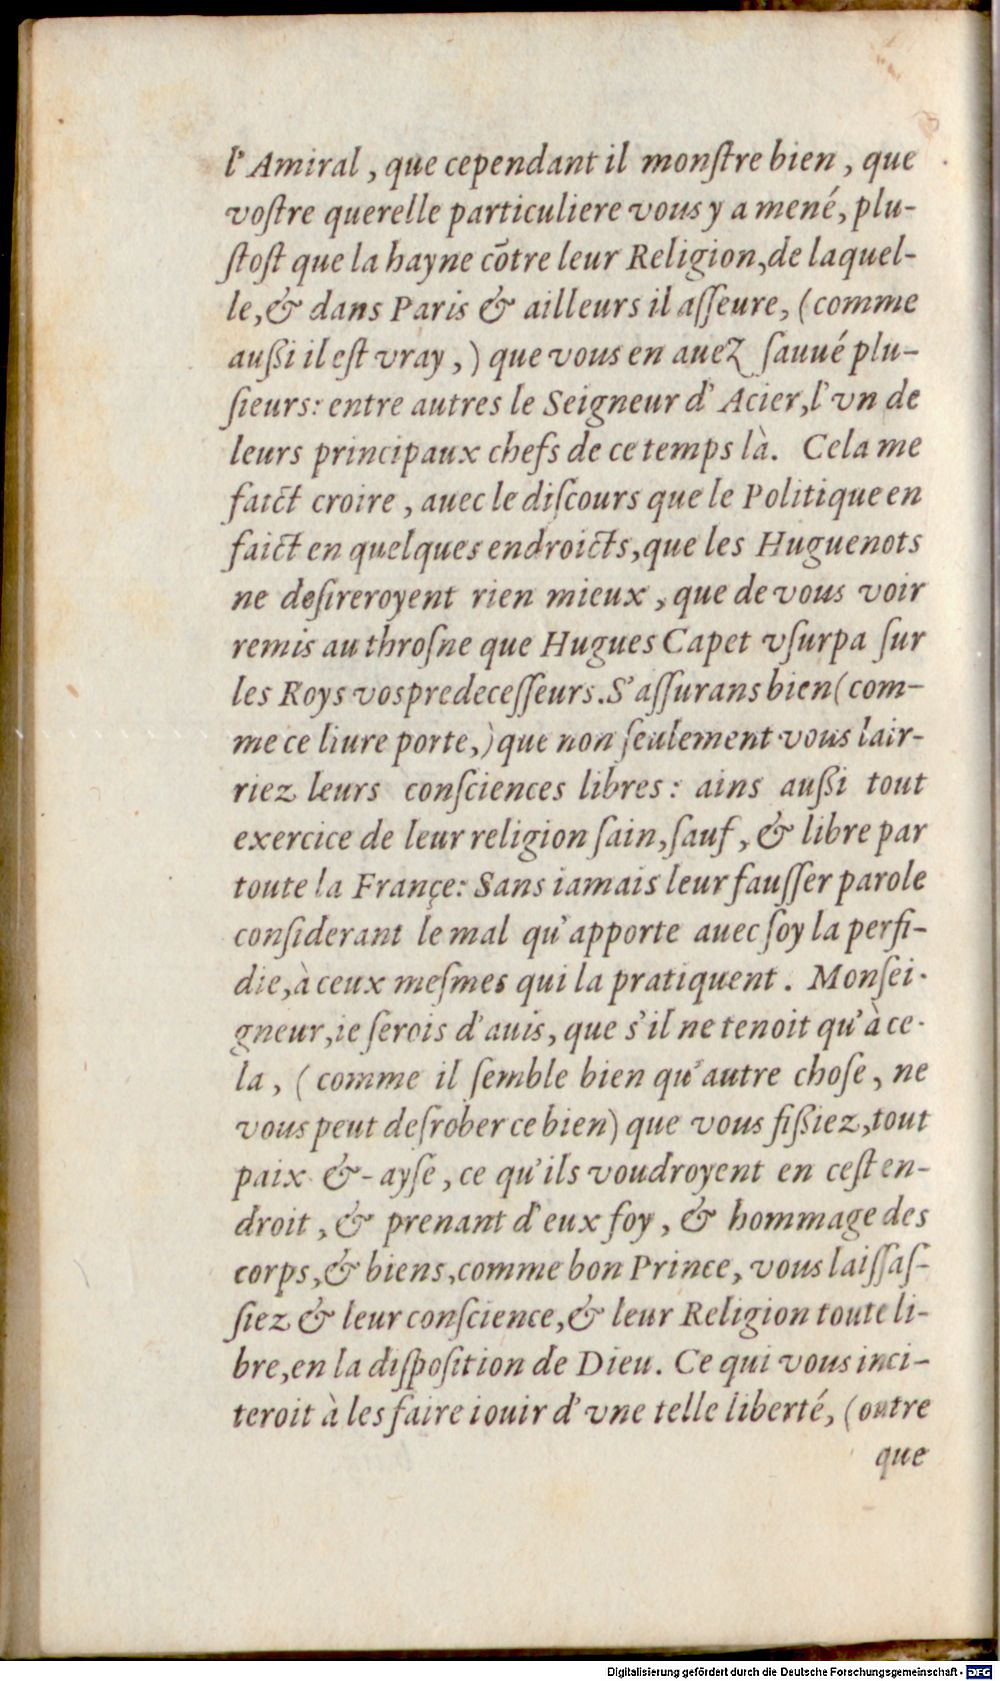 l'Amiral, que cependant il monſtre bien, que
voſtre querelle particuliere vous y a mené, plu-
ſtoſt que la hayne cõtre leur Religion, de laquel-
le, & dans Paris & ailleurs il aſſeure, (comme
außi il eſt vray,) que vous en auez ſauué plu-
ſieurs: entre autres le Seigneur d'Acier, l'vn de
leurs principaux chefs de ce temps là. Cela me
faict croire, auec le diſcours que le Politique en
faict en quelques endroicts, que les Huguenots
ne deſireroyent rien mieux, que de vous voir
remis au throſne que Hugues Capet vſurpa ſur
les Roys vos predeceſſeurs. S'aſſurans bien (com-
me ce liure porte,) que non ſeulement vous lair-
riez leurs conſciences libres: ains außi tout
exercice de leur religion ſain, ſauf, & libre par
toute la Françe: Sans iamais leur fauſſer parole
conſiderant le mal qu'apporte auec ſoy la perfi-
die, à ceux meſmes qui la pratiquent. Monſei-
gneur, ie ſerois d'auis, que s'il ne tenoit qu'à ce-
la, (comme il ſemble bien qu'autre choſe, ne
vous peut deſrober ce bien) que vous fißiez, tout
paix &- ayſe, ce qu'ils voudroyent en ceſt en-
droit, & prenant d'eux foy, & hommage des
corps, & biens, comme bon Prince, vous laiſſaſ-
ſiez & leur conſcience, & leur Religion toute li-
bre, en la diſpoſition de Dieu. Ce qui vous inci-
teroit à les faire iouir d'vne telle liberté, (outre
que
Digitalisierung gefördert durch die Deutsche Forschungsgemeinschaft - DFG